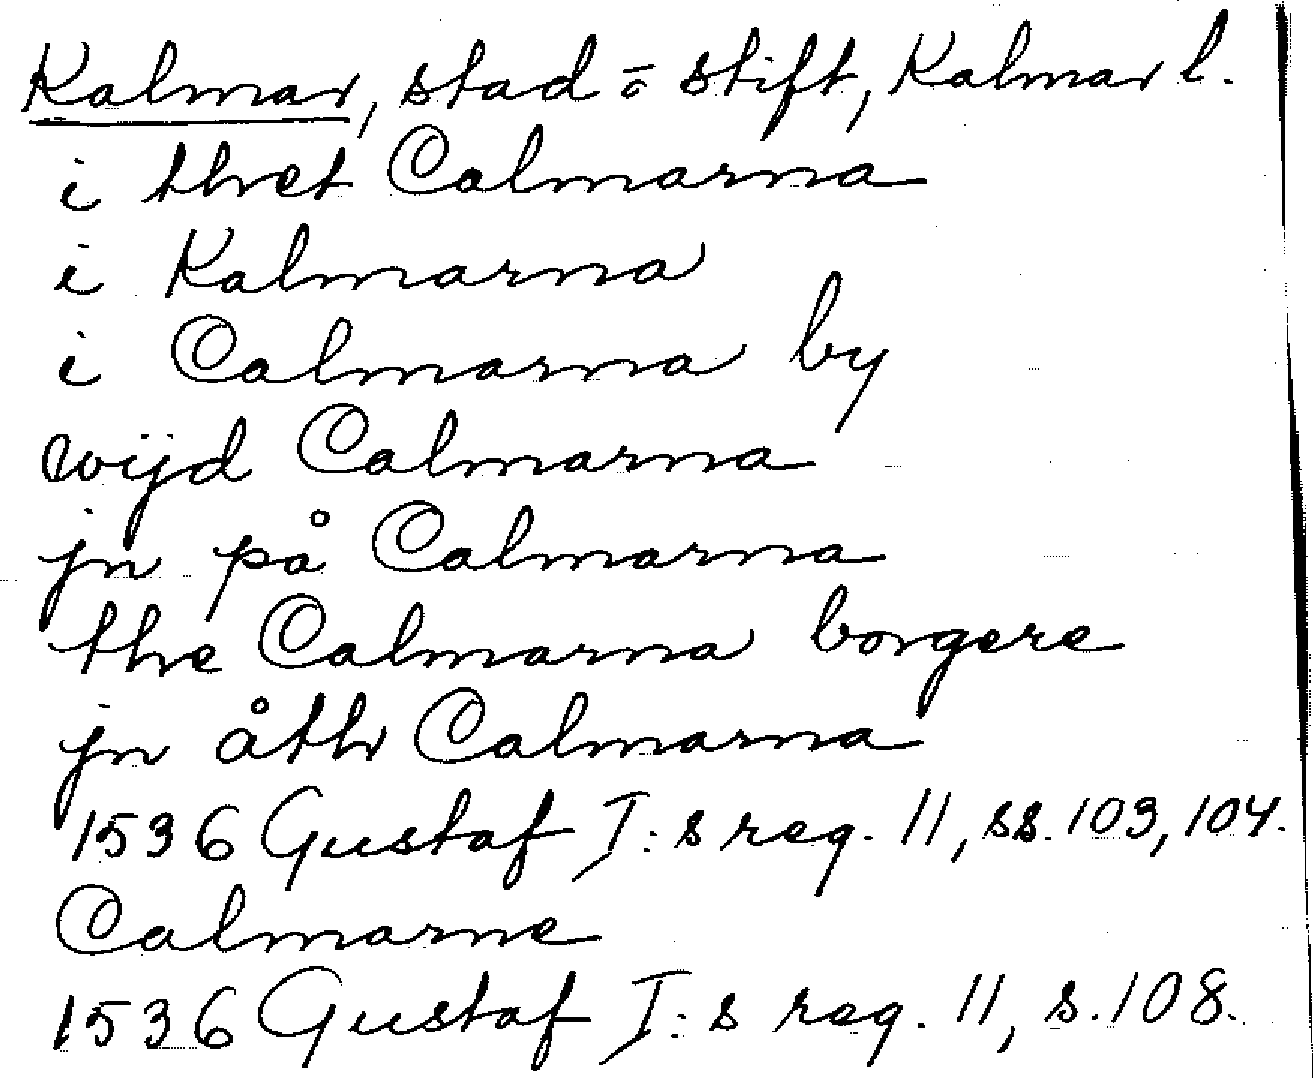 Kalmar, stad o stift, Kalmar l.
i thet Calmarna
i Kalmarna
i Calmarna by
wijd Calmarna
jn på Calmarna
the Calmarna borgere
jn åth Calmarna
1536 Gustaf I:s reg. 11, ss. 103, 104.
Calmarne
1536 Gustaf I:s reg. 11, s. 108.